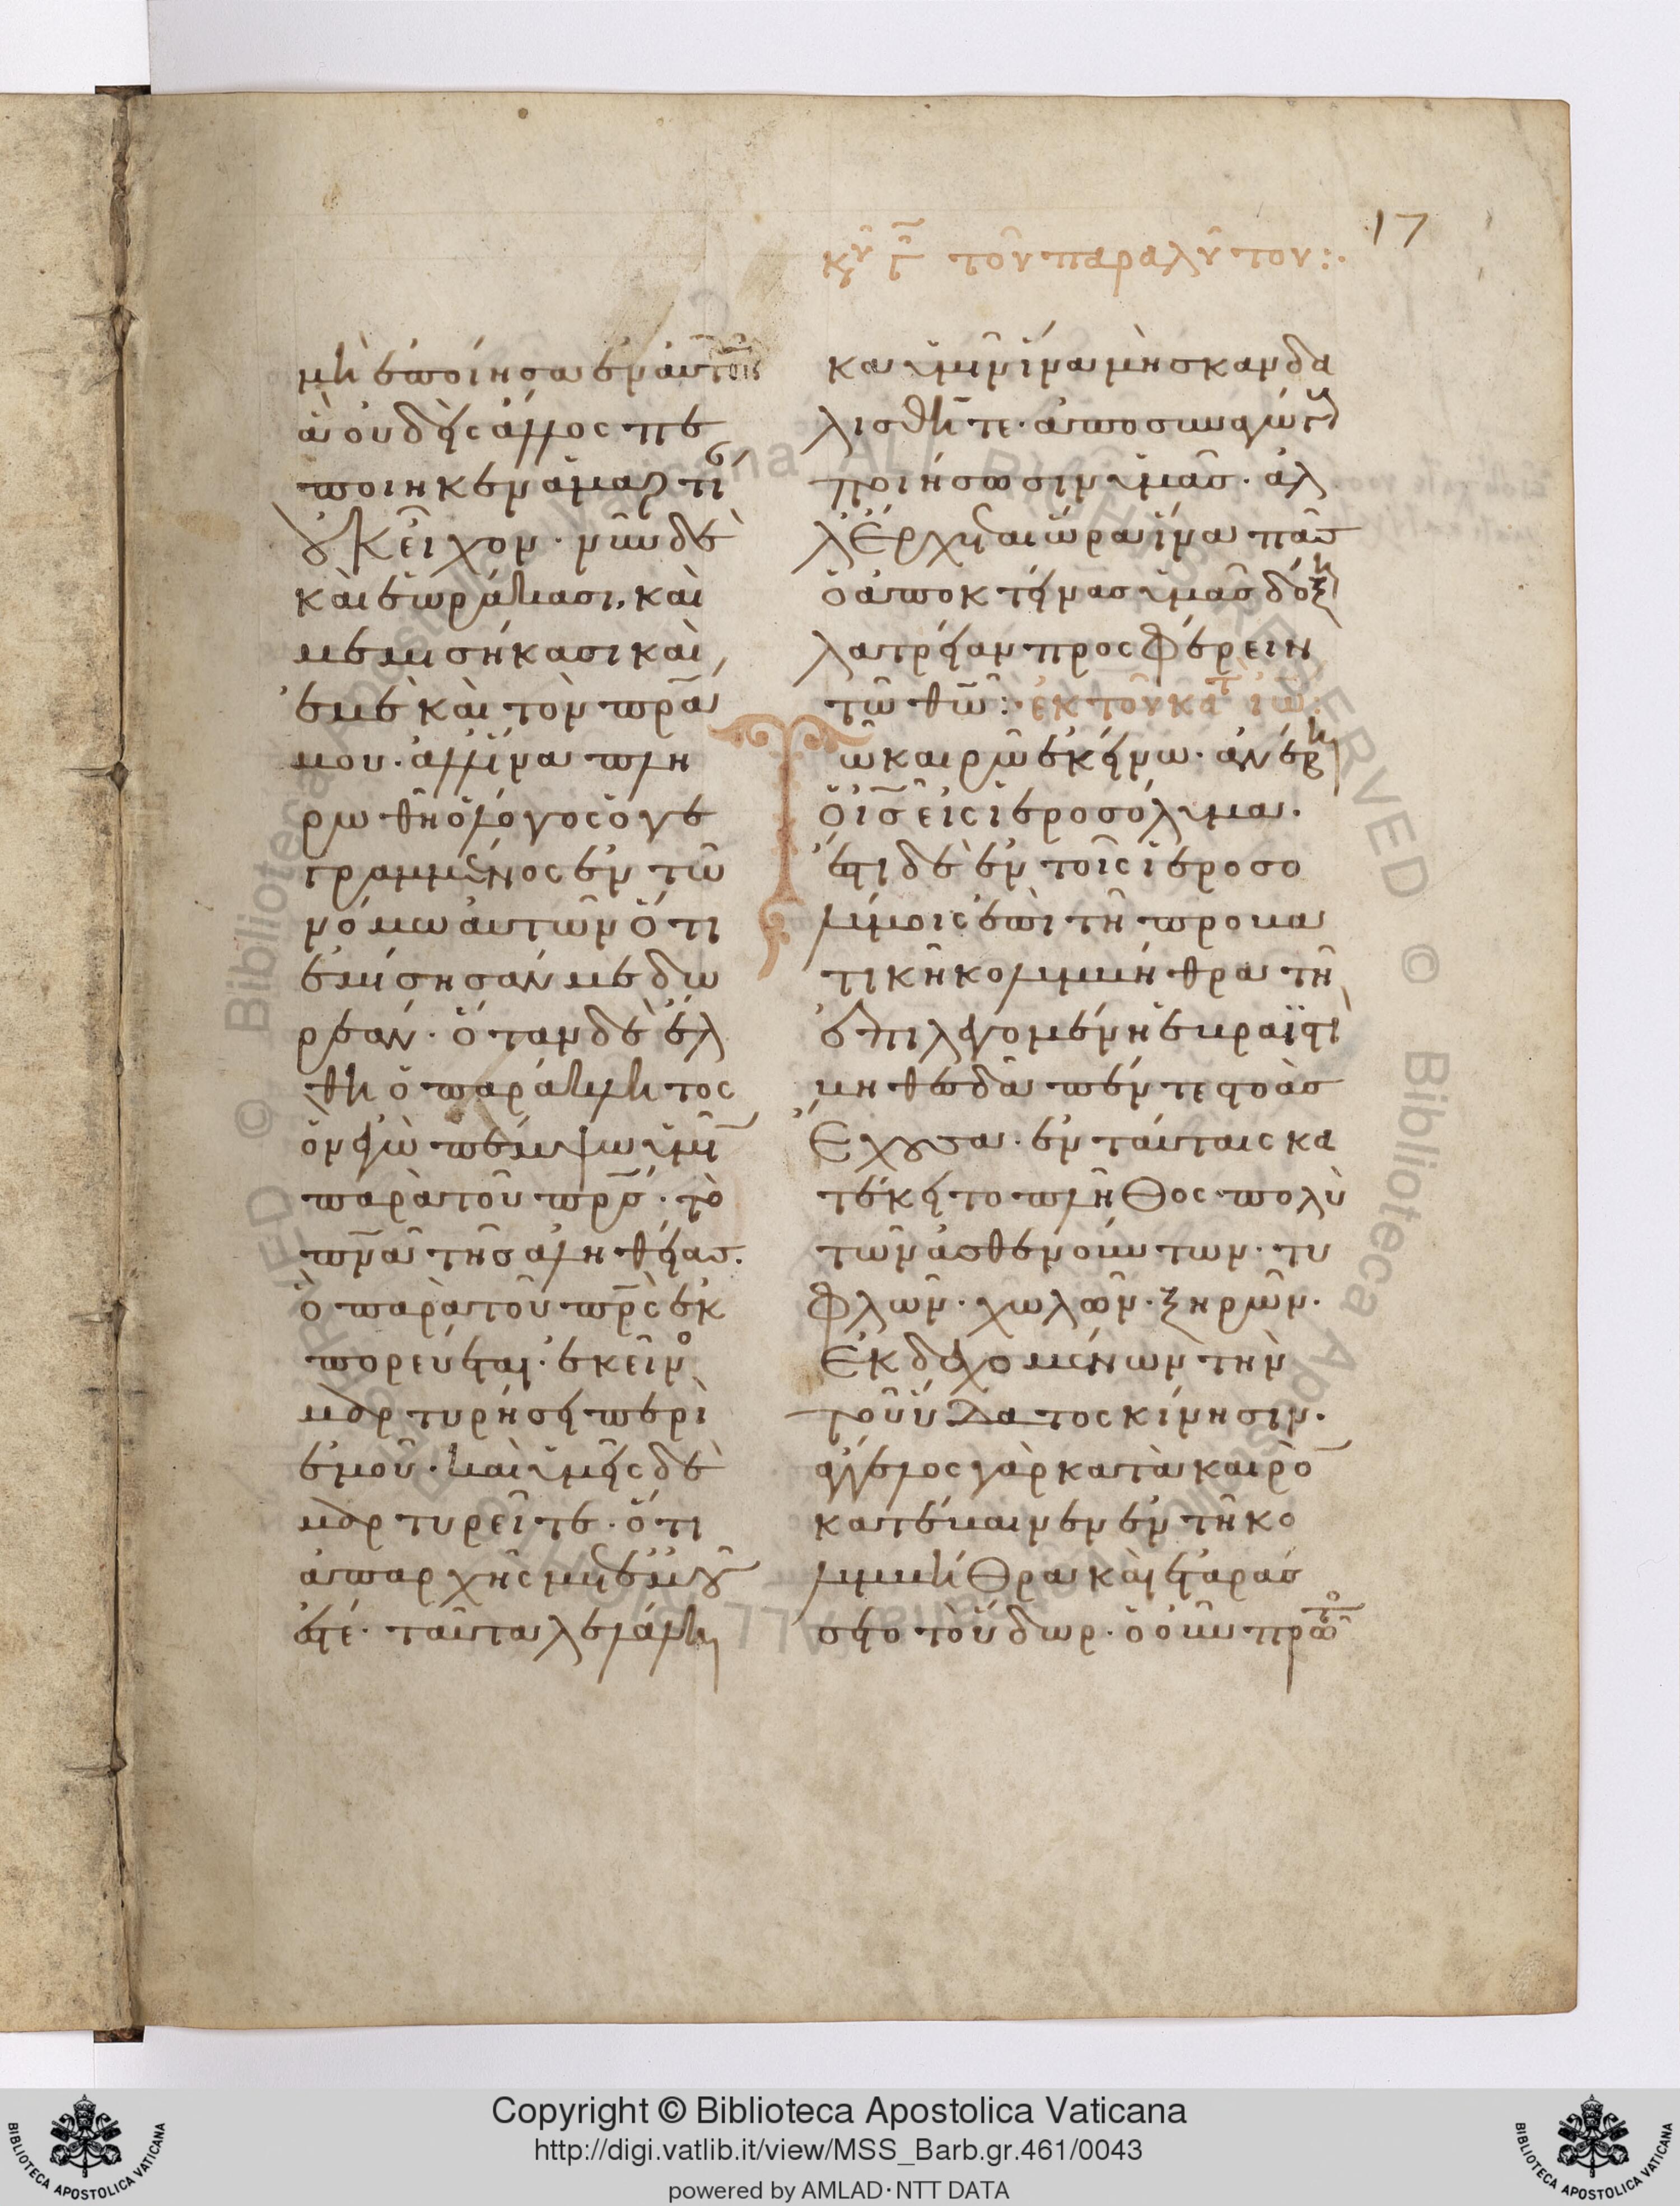 17
κυ γ τοῦ παραλύτου:·
μὴ ἐποίησα ἐν αὐτοῖς
ἃ οὐδεὶς ἄλλος πε
ποίηκεν ἁμαρτί
οὐκ εἶχον· νῦν δὲ
καὶ ἑωράκασι, καὶ
μεμισήκασι καὶ
ἐμὲ καὶ τὸν πρα
μου· ἀλλ' ἵνα πλη
ρωθῆ ὁ λόγος ὁ γε
γραμμένος ἐν τῶ
νόμω αὐτῶν ὅτι
ἐμίσησάν με δω
ρεάν· ὅταν δὲ ἔλ
θη ὁ παράκλητος
ὃν ἐγὼ πέμψω ὑμῖ
παρὰ τοῦ πρς· τὸ
πνα τῆς ἀληθείας·
ὃ παρὰ τοῦ πρς ἐκ
πορεύεται· ἐκεῖνο
μαρτυρήσει περὶ
ἐμοῦ· καὶ ὑμεῖς δὲ
μαρτυρεῖτε· ὅτι
ἀπαρχῆς μετ' ἐμοῦ
ἐστέ· ταῦτα λελάλη
κα ὑμῖν ἵνα μὴ σκανδα
λισθῆτε· ἀποσυναγώγ
ποιήσωσιν ὑμᾶς· ἀλ
λ' ἔρχεται ὥρα ἵνα πᾶς
ὁ ἀποκτείνας ὑμᾶς δόξη
λατρείαν προσφέρειν
τῶ θῶ: ἐκ τοῦ κατ ἰω:
ῶ καιρῶ ἐκείνω· ἀνέβη
ὁ ις εἰς ἱεροσόλυμα·
ἔστι δὲ ἐν τοῖς ἱεροσο
λύμοις ἐπὶ τῆ προβα
τικῆ κολυμβήθρα τῆ
ἐπιλεγομένη ἑβραϊστὶ
βηθεσδὰ πέντε στοὰς
ἔχουσα· ἐν ταύταις κα
τέκειτο πλῆθος πολὺ
τῶν ἀσθενούντων· τυ
φλῶν· χωλῶν· ξηρῶν·
ἐκδεχομένων τὴν
τοῦ ὕδατος κίνησιν·
ἄγγελος γὰρ κατὰ καιρὸ
κατέβαινεν ἐν τῆ κο
λυμβήθρα καὶ ἐτάρασ
σε τὸ ὕδωρ· ὁ οὖν πρῶτο
Copyright © Biblioteca Apostolica Vaticana
http://digi.vatlib.it/view/MSS_Barb.gr.461/0043
powered by AMLAD·NTT DATA